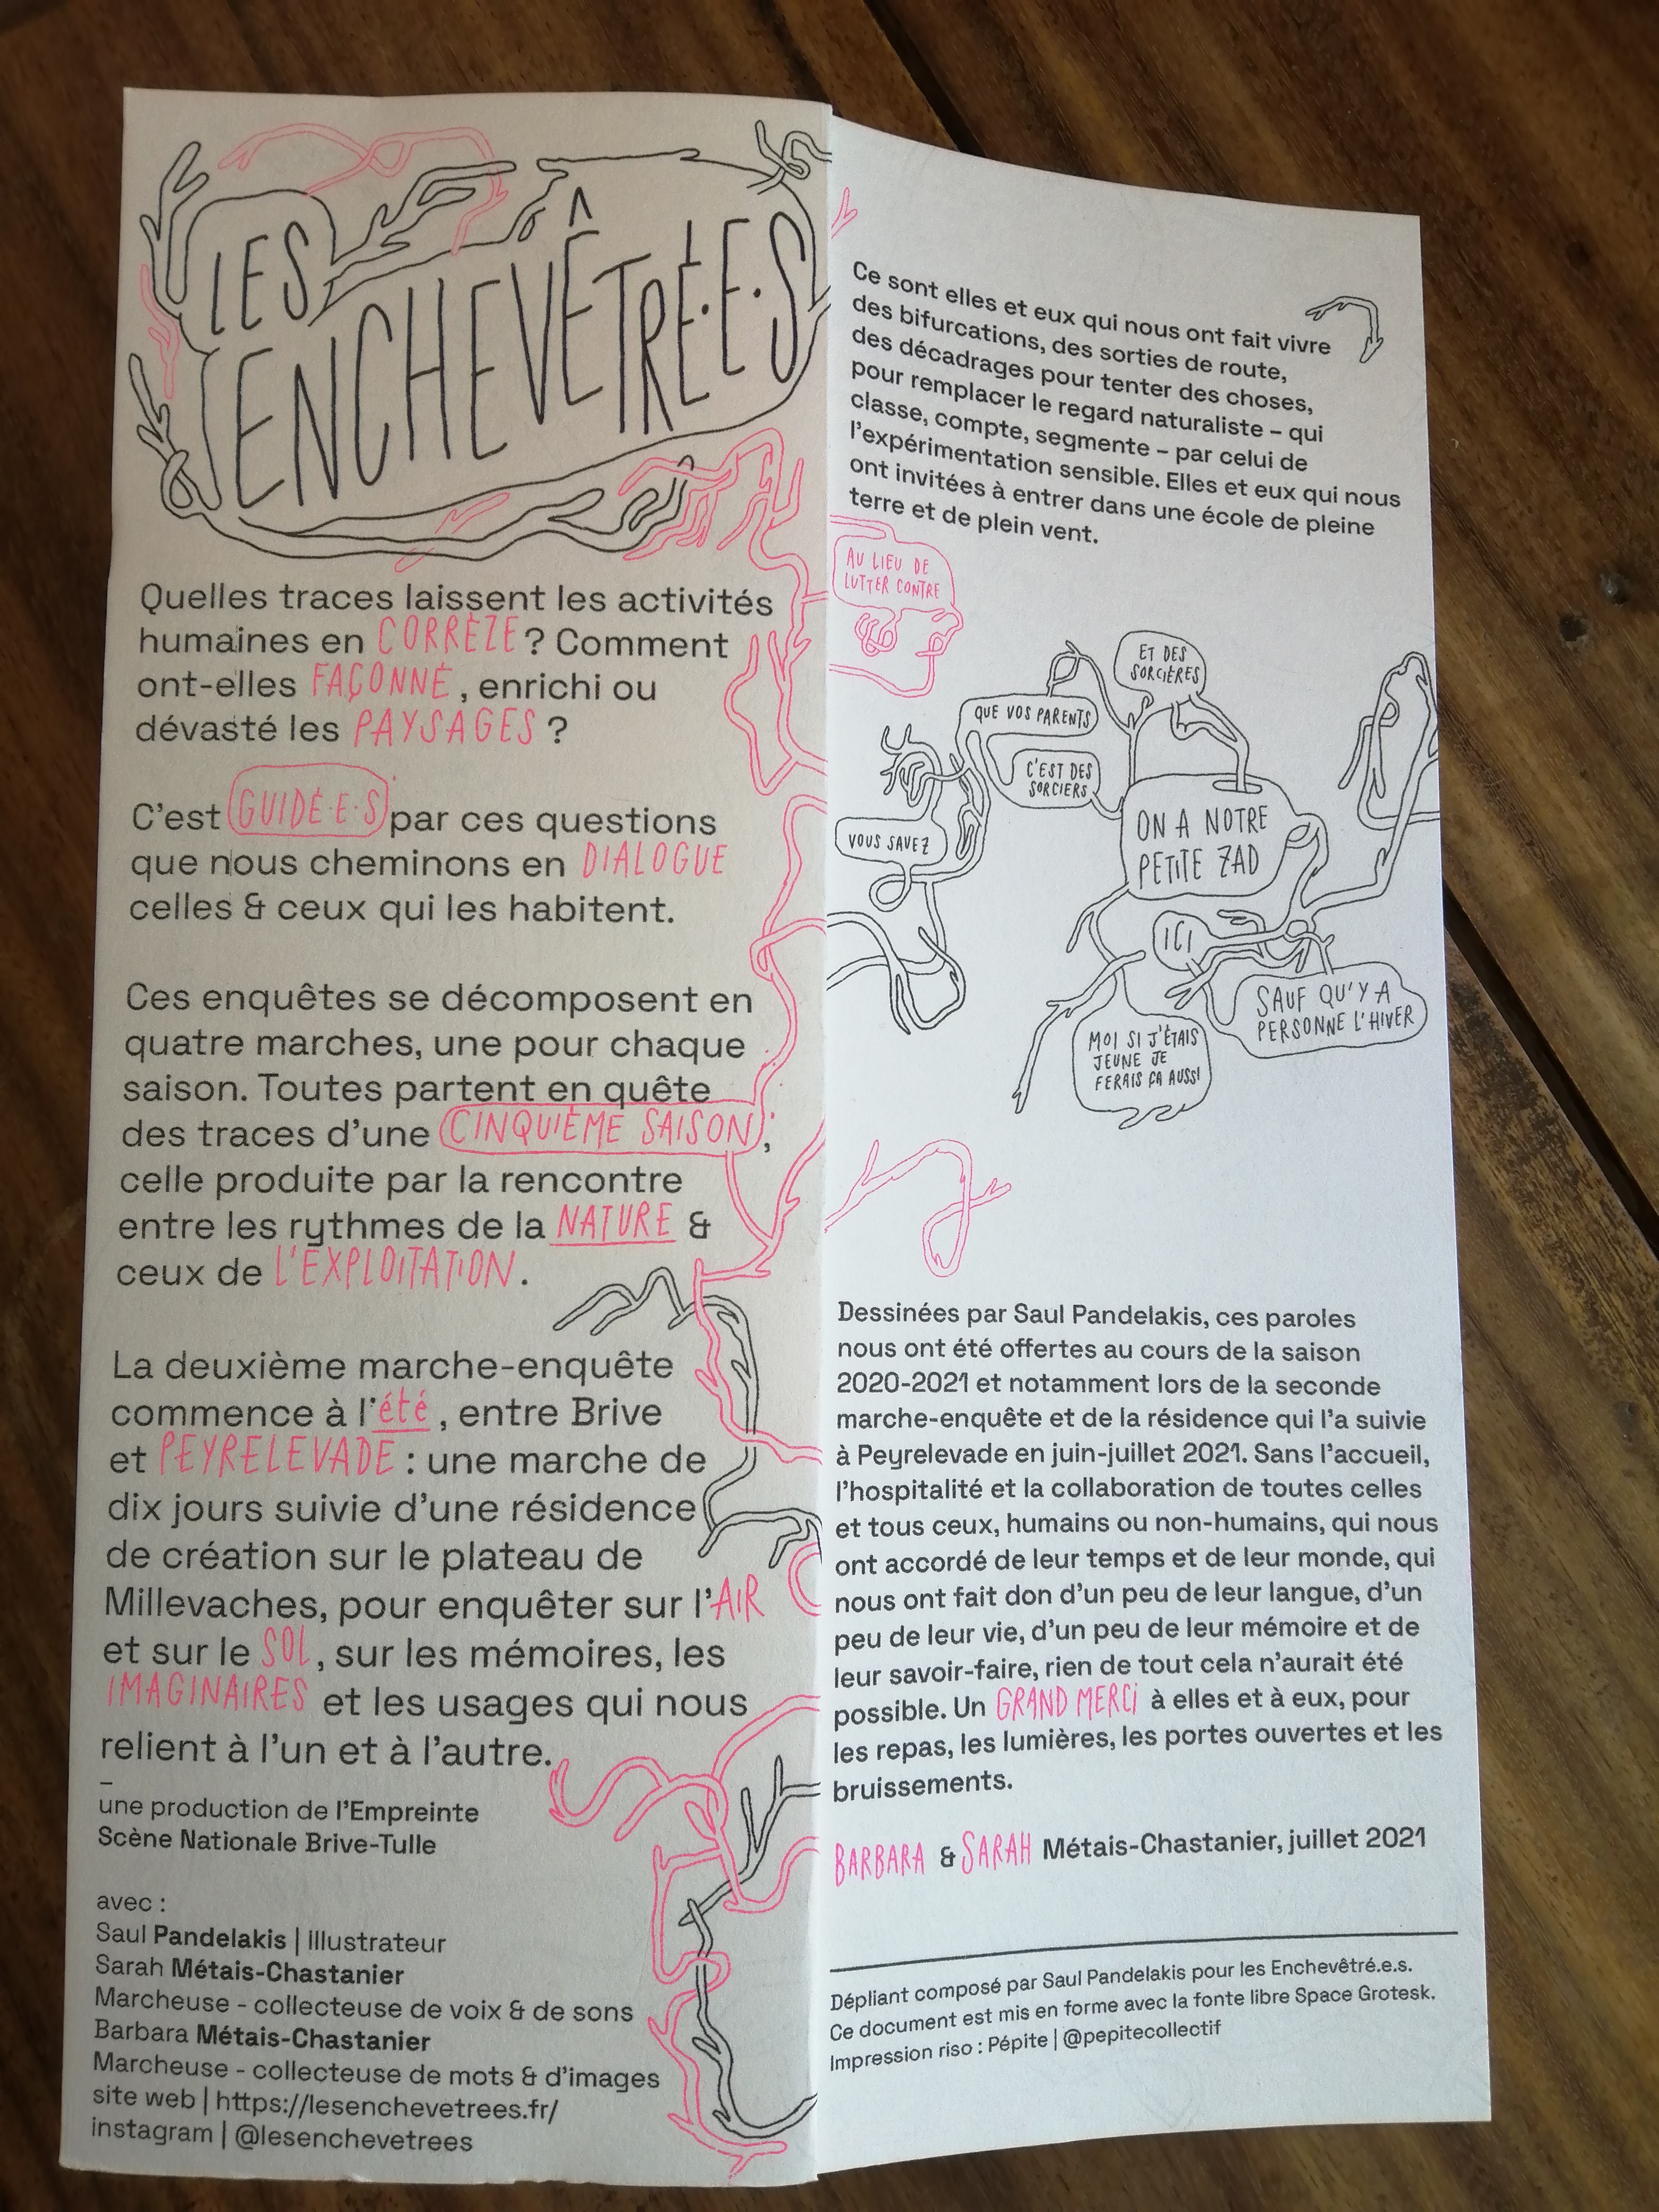 LES
ENCHEVÊTRÉ·E·S
Quelles traces laissent les activités
humaines en CORRÈZE ? Comment
ont-elles FAÇONNÉ, enrichi ou
dévasté les PAYSAGES ?
C'est GUIDÉ·E·S par ces questions
que nous cheminons en DIALOGUE
celles & ceux qui les habitent.
Ces enquêtes se décomposent en
quatre marches, une pour chaque
saison. Toutes partent en quête
des traces d'une CINQUIÈME SAISON,
celle produite par la rencontre
entre les rythmes de la NATURE &
ceux de L'EXPLOITATION.
La deuxième marche-enquête
commence à l'été, entre Brive
et PEYRELEVADE : une marche de
dix jours suivie d'une résidence
de création sur le plateau de
Millevaches, pour enquêter sur l'AIR
et sur le SOL, sur les mémoires, les
IMAGINAIRES et les usages qui nous
relient à l'un et à l'autre.
–
une production de l'Empreinte
Scène Nationale Brive-Tulle
avec :
Saul Pandelakis | illustrateur
Sarah Métais-Chastanier
Marcheuse - collecteuse de voix & de sons
Barbara Métais-Chastanier
Marcheuse - collecteuse de mots & d'images
site web | https://lesenchevetrees.fr/
instagram | @lesenchevetrees
Ce sont elles et eux qui nous ont fait vivre
des bifurcations, des sorties de route,
des décadrages pour tenter des choses,
pour remplacer le regard naturaliste – qui
classe, compte, segmente – par celui de
l'expérimentation sensible. Elles et eux qui nous
ont invitées à entrer dans une école de pleine
terre et de plein vent.
AU LIEU DE
LUTTER CONTRE
ET DES
SORCIÈRES
QUE VOS PARENTS
C'EST DES
SORCIERS
VOUS SAVEZ
ON A NOTRE
PETITE ZAD
ICI
SAUF QU'Y A
PERSONNE L'HIVER
MOI SI J'ÉTAIS
JEUNE JE
FERAIS ÇA AUSSI
Dessinées par Saul Pandelakis, ces paroles
nous ont été offertes au cours de la saison
2020-2021 et notamment lors de la seconde
marche-enquête et de la résidence qui l'a suivie
à Peyrelevade en juin-juillet 2021. Sans l'accueil,
l'hospitalité et la collaboration de toutes celles
et tous ceux, humains ou non-humains, qui nous
ont accordé de leur temps et de leur monde, qui
nous ont fait don d'un peu de leur langue, d'un
peu de leur vie, d'un peu de leur mémoire et de
leur savoir-faire, rien de tout cela n'aurait été
possible. Un GRAND MERCI à elles et à eux, pour
les repas, les lumières, les portes ouvertes et les
bruissements.
BARBARA & SARAH Métais-Chastanier, juillet 2021
Dépliant composé par Saul Pandelakis pour les Enchevêtré.e.s.
Ce document est mis en forme avec la fonte libre Space Grotesk.
Impression riso : Pépite | @pepitecollectif